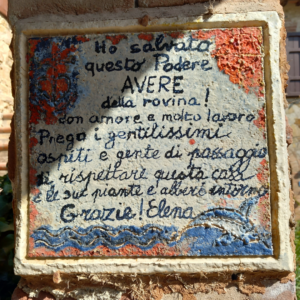 Ho salvato
questo Podere
AVERE
della rovina!
con amore e molto lavoro
Prego i gentilissimi
ospiti e gente di passaggio
di rispettare questa casa
e le sue piante e alberi intorno
Grazie! Elena